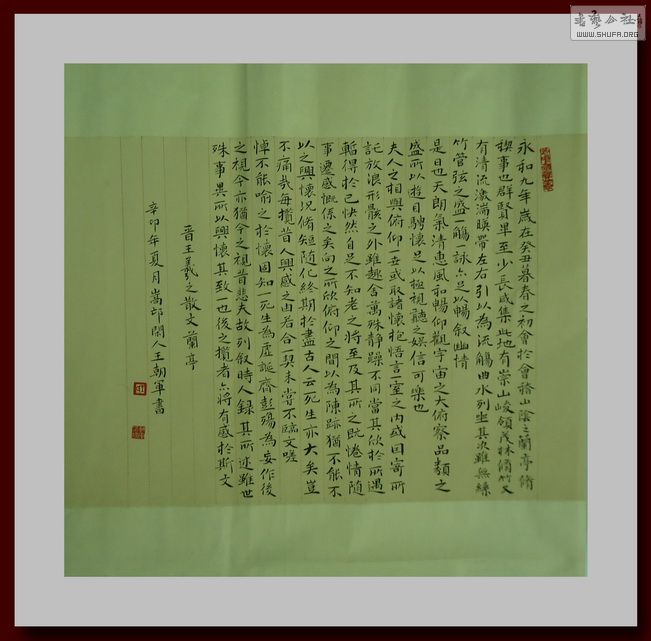 永和九年歲在癸丑暮春之初會於會稽山陰之蘭亭脩
稧事也群賢畢至少長咸集此地有崇山峻領茂林脩竹又
有清流激湍暎帶左右引以為流觴曲水列坐其次雖無絲
竹管弦之盛一觴一詠亦足以暢叙幽情
是日也天朗氣清惠風和暢仰觀宇宙之大俯察品類之
盛所以遊目騁懷足以極視聽之娛信可樂也
夫人之相與俯仰一世或取諸懷抱悟言一室之內或因寄所
託放浪形骸之外雖趣舍萬殊靜躁不同當其欣於所遇
蹔得於己快然自足不知老之將至及其所之既惓情隨
事遷感慨係之矣向之所欣俯仰之間以為陳跡猶不能不
以之興懷況脩短隨化終期於盡古人云死生亦大矣豈
不痛哉每攬昔人興感之由若合一契未嘗不臨文嗟
悼不能喻之於懷固知一死生為虛誕齊彭殤為妄作後
之視今亦猶今之視昔悲夫故列叙時人錄其所述雖世
殊事異所以興懷其致一也後之攬者亦將有感於斯文
晉王羲之散文蘭亭
辛卯年夏月嵩邙閑人王朝軍書
書藝公社
WWW.SHUFA.ORG